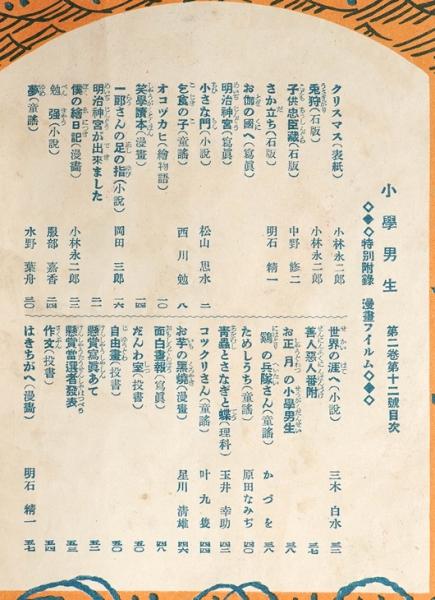 小學男生　第二卷第十二號目次
◇◆◇特別附錄　漫畫フイルム◇◆◇
クリスマス（表紙）　小林永二郎
兎狩（石版）　小林永二郎
子供忠臣藏（石版）　中野　修二
さか立ち（石版）　明石　精一
お伽の國へ（寫眞）
明治神宮（寫眞）
小さな門（小說）　松山　思水　二
乞食の子（童謠）　西川　勉　八
オコヅカヒ（繪物語）　一〇
笑學讀本（漫畫）　一四
一郞さんの足の指（小說）　岡田　三郞　一六
明治神宮が出來ました　二一
僕の繪日記（漫畫）　小林永二郎　二三
勉强（小說）　服部　嘉香　二四
夢（童謠）　水野　葉舟　三〇
世界の涯へ（小說）　三木　白水　三二
善人惡人番附　三七
お正月の小學男生　三八
鷄の兵隊さん（童謠）　かづを　三八
ためしうち（童謠）　原田なみぢ　四〇
靑蟲とさなぎと蝶（理科）　玉井　幸助　四二
コックリさん（童謠）　叶　九隻　四四
お芋の黑燒（漫畫）　星川　淸雄　四六
面白畫報（寫眞）　四八
だんわ室（投書）　五〇
自由畫（投書）　五〇
懸賞寫眞あて　五二
懸賞當選者發表　五三
作文（投書）　五四
はきちがへ（漫畫）　明石　精一　五七